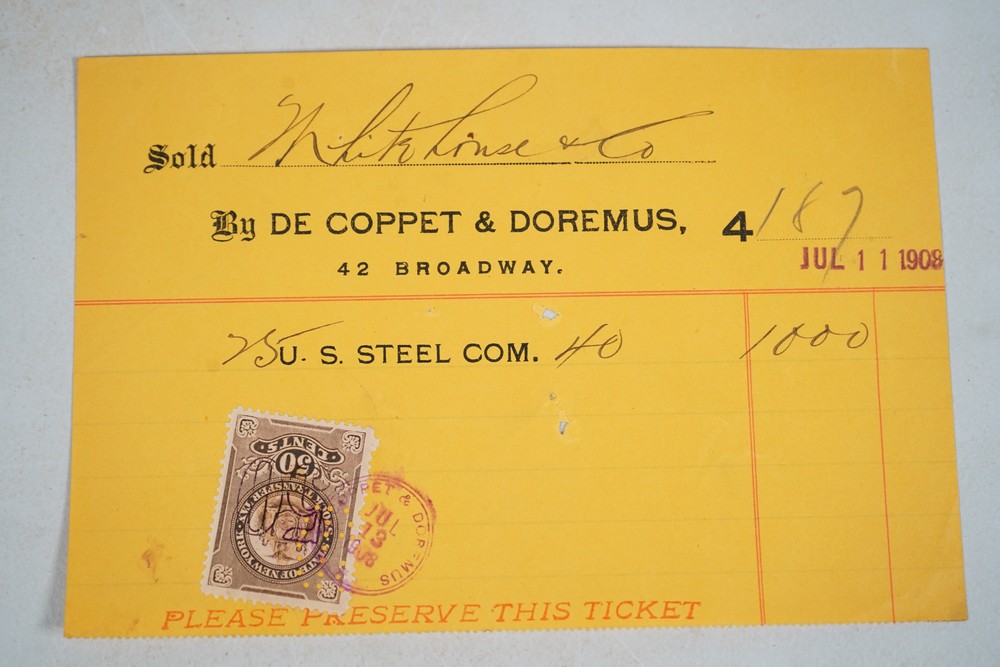 Sold Whitehouse & Co
By DE COPPET & DOREMUS, 4187
42 BROADWAY. JUL 11 1908
25 U. S. STEEL COM. 40 1000
CENTS
50
STOCK TRANSFER TAX
STATE OF NEW YORK
COPPET & DOREMUS
JUL
13
1908
PLEASE PRESERVE THIS TICKET